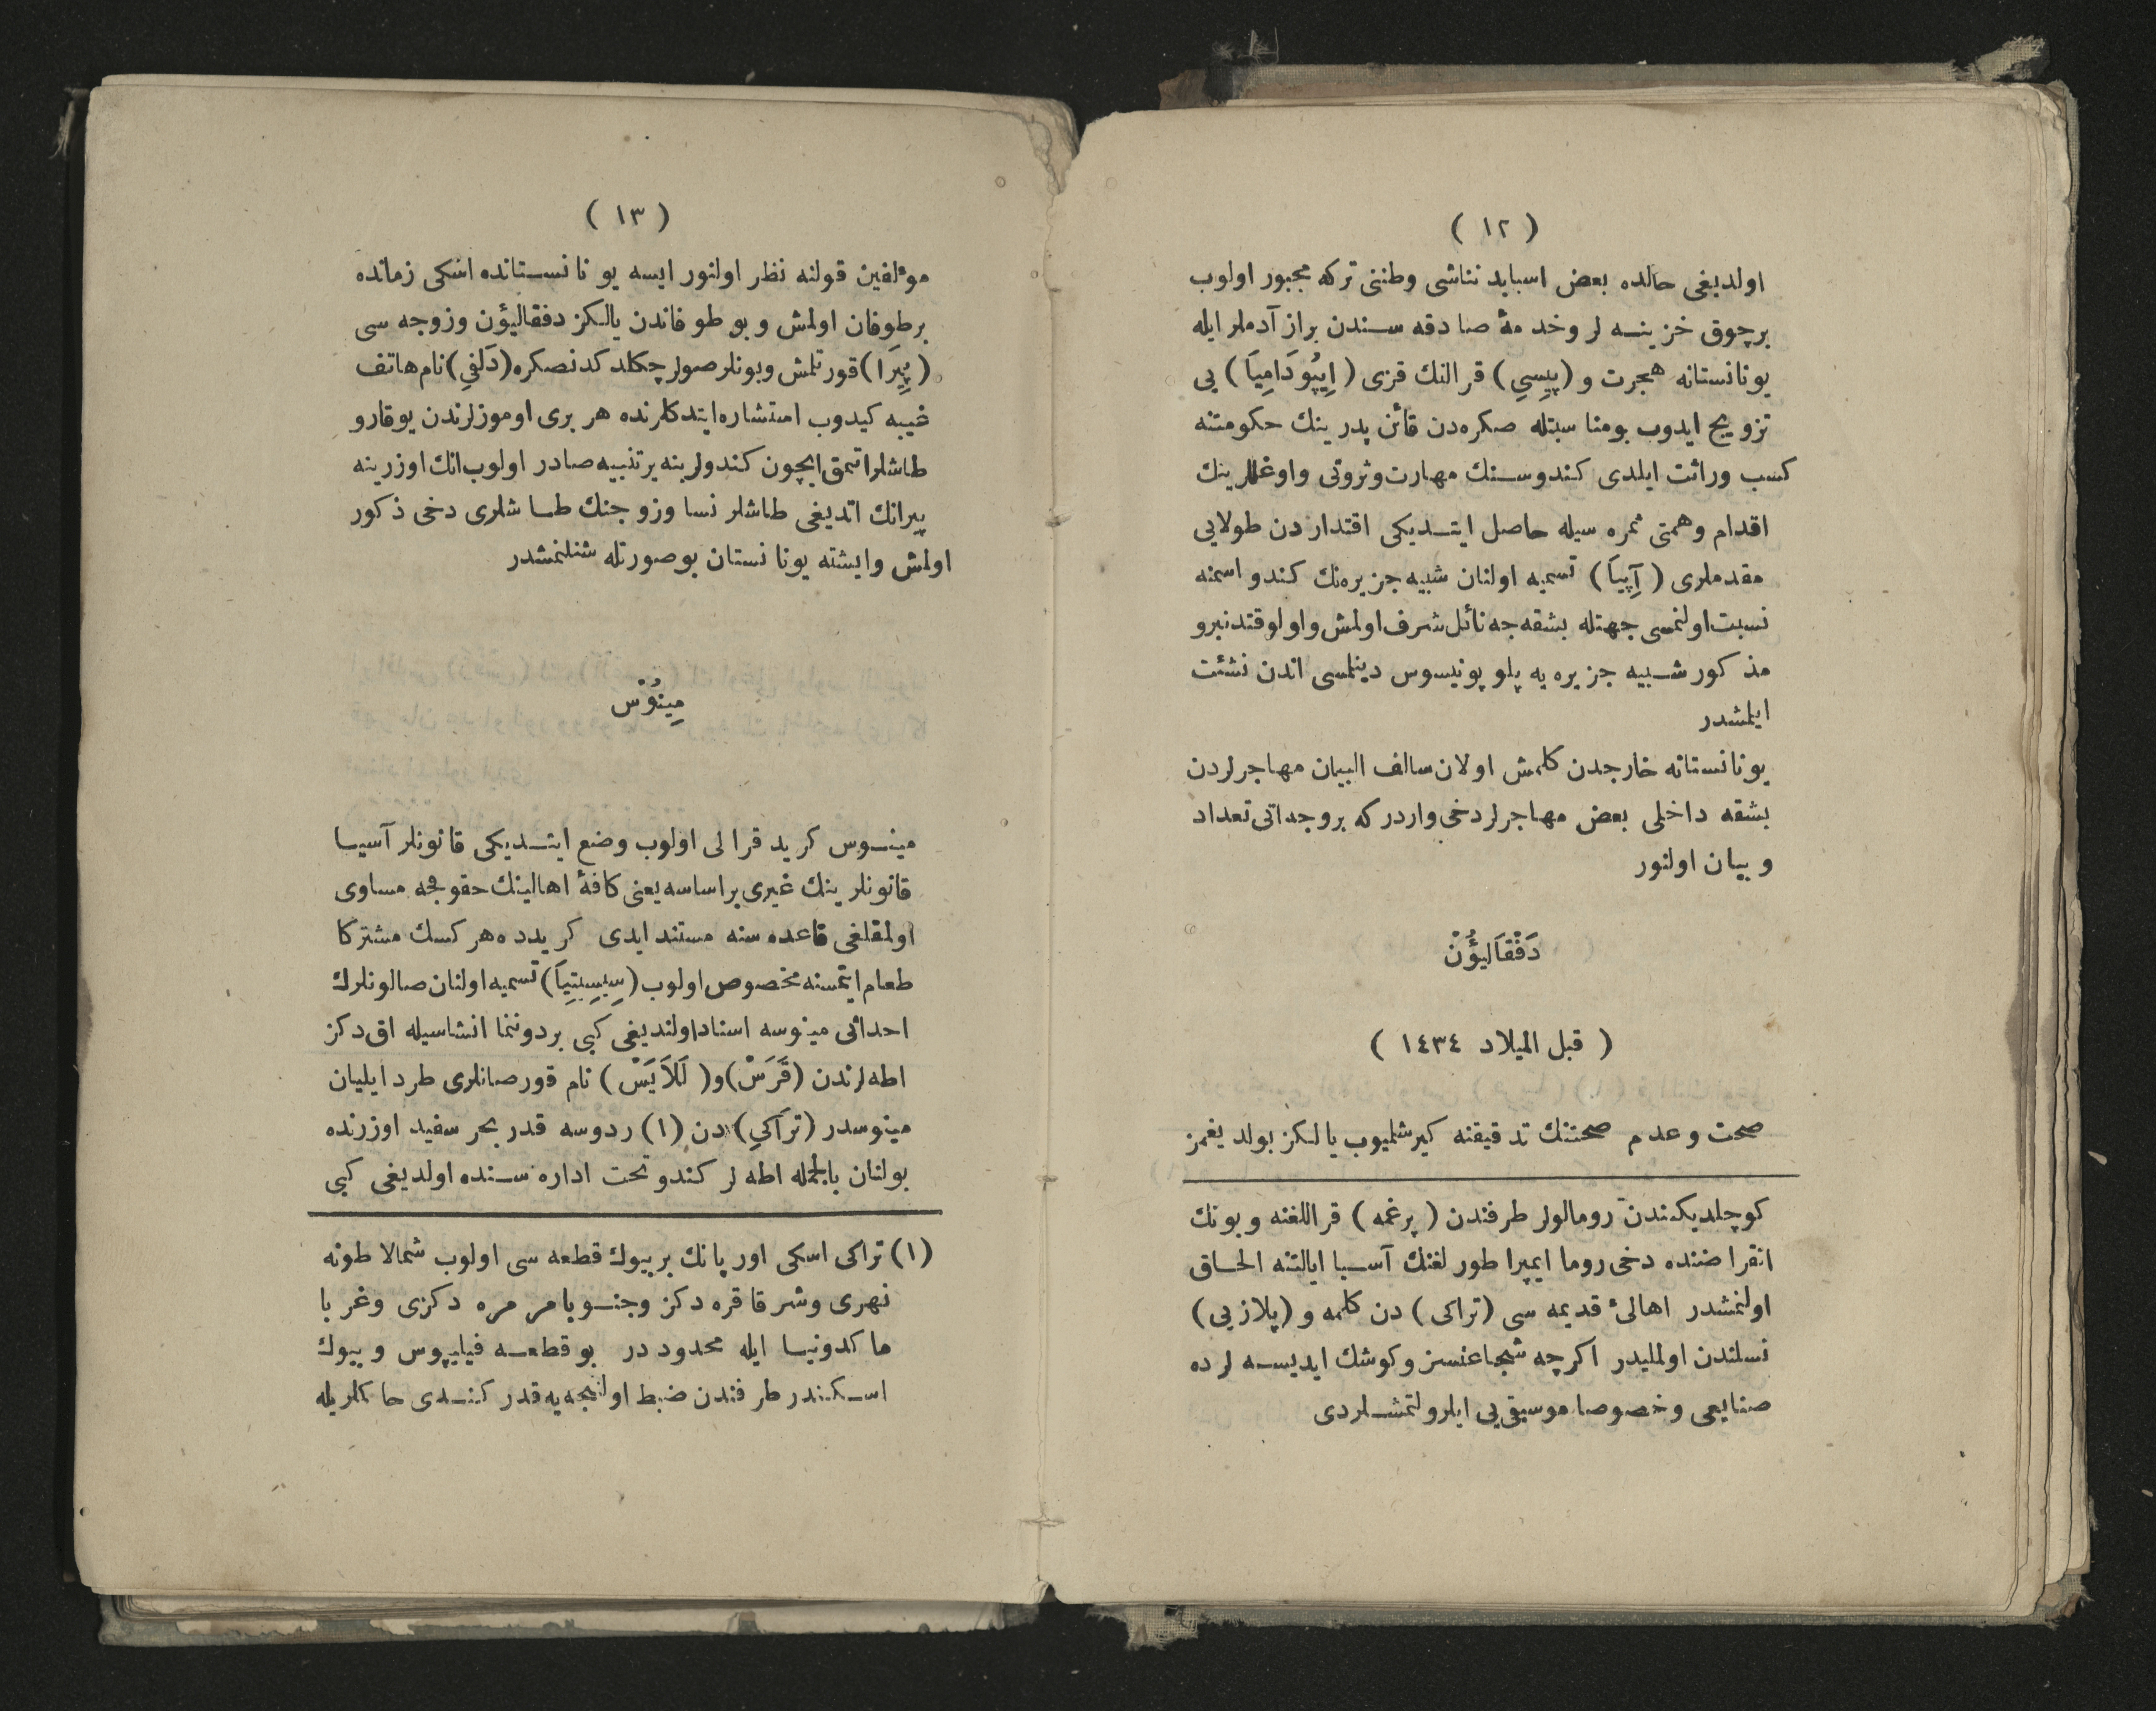 ( ١٢ )
اولديغى حالده بعض اسبابد نناشى وطننى تركه مجبور اولوب
برچوق خزينه لر وخدمۀ صادقه سندن براز آدملر ايله
يونانستانه هجرت و (پيسِيِ) قرالنك قزى (اِيپُودَامِيَا) يى
تزويج ايدوب بومناسبتله صكره‌دن قائن پدرينك حكومتنه
كسب وراثت ايلدى كندوسنك مهارت وثروتى واوغللرينك
اقدام وهمتى ثمره سيله حاصل ايتديكى اقتداردن طولايى
مقدملرى (آپِيَا) تسميه اولنان شبيه جزيره‌نك كندو اسمنه
نسبت اولنمسى جهتله بشقه‌جه نائل شرف اولمش واولوقتدنبرو
مذكور شبيه جزيره يه پلوپونيسوس دينلمسى اندن نشئت
ايلمشدر
يونانستانه خارجدن كلمش اولان سالف البيان مهاجرلردن
بشقه داخلى بعض مهاجرلر دخى واردركه بروجه‌آتى تعداد
وبيان اولنور
دَفْقَاليؤُنْ
( قبل الميلاد ١٤٣٤ )
صحت وعدم صحتنك تدقيقنه كيرشليوب يالكز بولديغمز
كوچلديكندن رومالولر طرفندن (پرغمه) قراللغنه وبونك
انقراضنده دخى روما ايمپراطورلغنك آسيا ايالتنه الحاق
اولنمشدر اهالئ قديمه سى (تراكى) دن كلمه و (پلازيى)
نسلندن اولمليدر اكرچه شجاعتسز وكوشك ايديسه لرده
صنايعى وخصوصا موسيقى يى ايلرولتمشلردى
( ١٣ )
موٴلفين قولنه نظر اولنور ايسه يونانستانده اسكى زمانده
برطوفان اولمش وبو طوفاندن يالكز دفقاليؤن وزوجه سى
(پِيَرا) قورتلمش وبونلر صولر چكلدكدنصكره (دَلفِي) نام هاتف
غيبه كيدوب استشاره ايتدكلرنده هر برى اوموزلرندن يوقارو
طاشلر اتمق ايچون كندولرينه برتنبيه صادر اولوب انك اوزرينه
پيرانك اتديغى طاشلر نسا وزوجنك طاشلرى دخى ذكور
اولمش وايشته يونانستان بوصورتله شنلنمشدر
مِينُوسْ
مينوس كريد قرالى اولوب وضع ايتديكى قانونلر آسيا
قانونلرينك غيرى براساسه يعنى كافۀ اهالينك حقوقجه مساوى
اولمقلغى قاعده سنه مستند ايدى كريدده هر كسك مشتركا
طعام ايتمسنه مخصوص اولوب (سِيسِيتِيَا) تسميه اولنان صالونلرك
احداثى مينوسه اسناد اولنديغى كبى بردوننما انشاسيله اق دكز
اطه لرندن (قَرَسْ) و (لَلَايَسْ) نام قورصانلرى طرد ايليان
مينوسدر (ترَاكيِ) دن (١) ردوسه قدر بحر سفيد اوزرنده
بولنان بالجمله اطه لر كندو تحت اداره سنده اولديغى كبى
(١) تراكى اسكى اورپانك بربيوك قطعه سى اولوب شمالا طونه
نهرى وشرقا قره دكز وجنوبا مرمره دكزى وغربا
ماكدونيا ايله محدوددر بوقطعه فيليپوس وبيوك
اسكندر طرفندن ضبط اولنجه‌يه قدر كندى حاكملريله